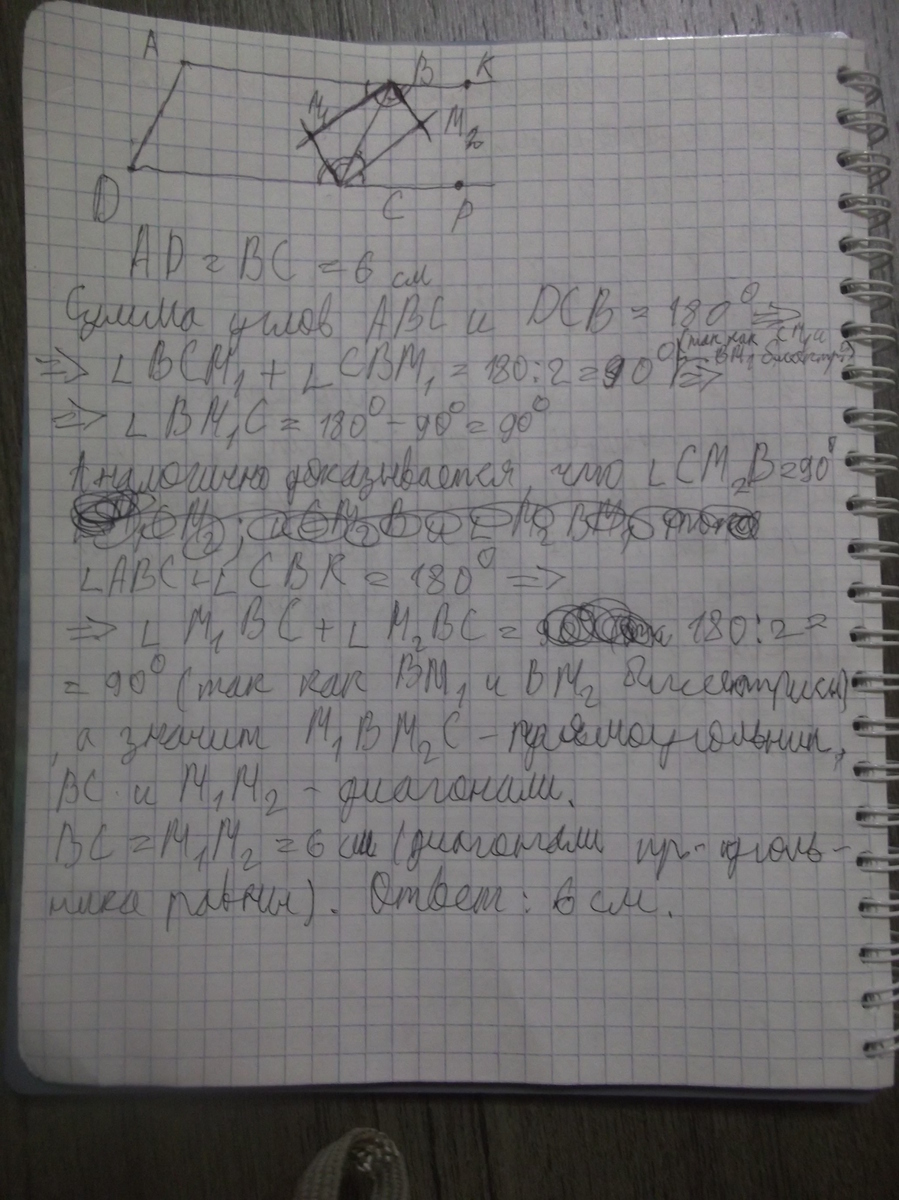 A B K
M₁ M₂
D C P
AD = BC = 6 см
Сумма углов ABC и DCB = 180° =>
=> ∠BCM₁ + ∠CBM₁ = 180:2 = 90° (так как CM₁ и BM₁ биссектр.) =>
=> ∠BM₁C = 180° - 90° = 90°
Аналогично доказывается, что ∠CM₂B = 90°
∠ABC + ∠CBK = 180° =>
=> ∠M₁BC + ∠M₂BC = 180:2 =
= 90° (так как BM₁ и BM₂ биссектрисы)
, а значит M₁BM₂C - прямоугольник,
BC и M₁M₂ - диагонали.
BC = M₁M₂ = 6 см (диагонали пр-уголь-
ника равны). Ответ: 6 см.